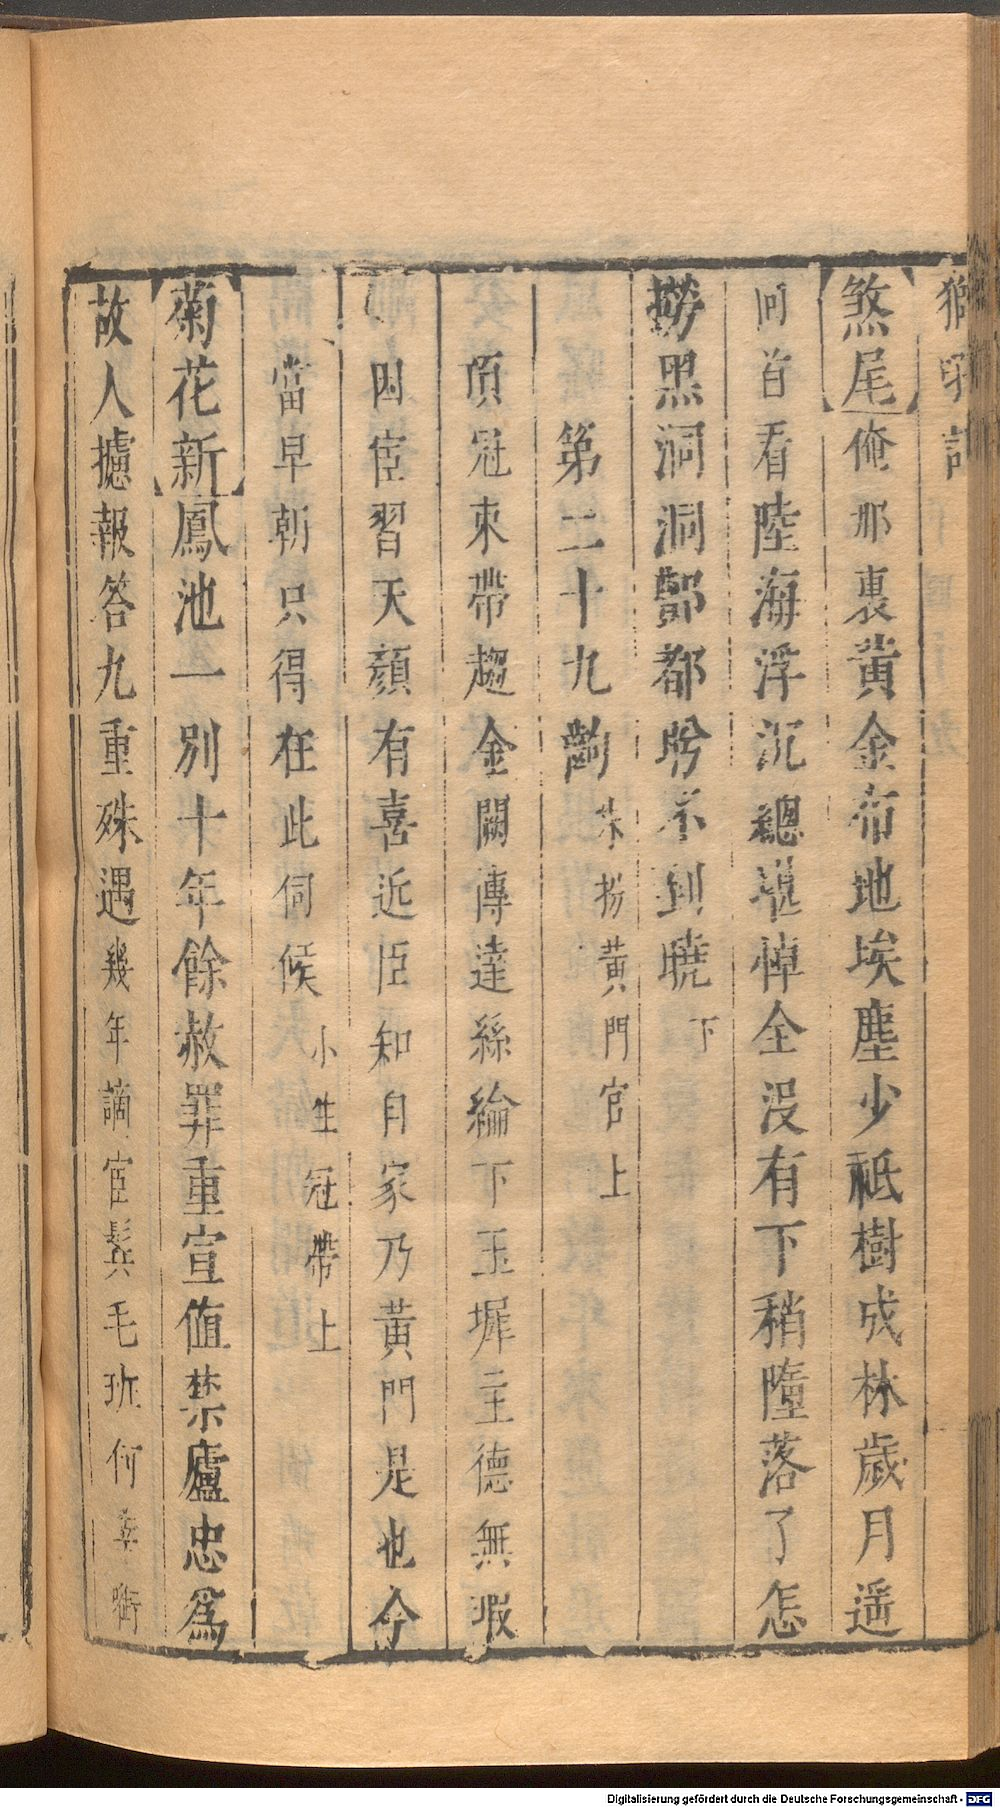 煞尾俺那裏黃金布地埃塵少祗樹成林歲月遥
回首看陸海浮沉總堪悼全沒有下稍墮落了怎
撈黑洞洞酆都盼不到曉 下
第二十九齣 末扮黃門官上
頂冠束帶趨金闕傳達絲綸下玉墀主德無瑕
因宦習天顏有喜近臣知自家乃黃門是也今
當早朝只得在此伺候 小生冠帶上
菊花新鳳池一別十年餘赦罪重宣值禁廬忠爲
故人攄報答九重殊遇幾年謫宦鬂毛班何幸
Digitalisierung gefördert durch die Deutsche Forschungsgemeinschaft - DFG